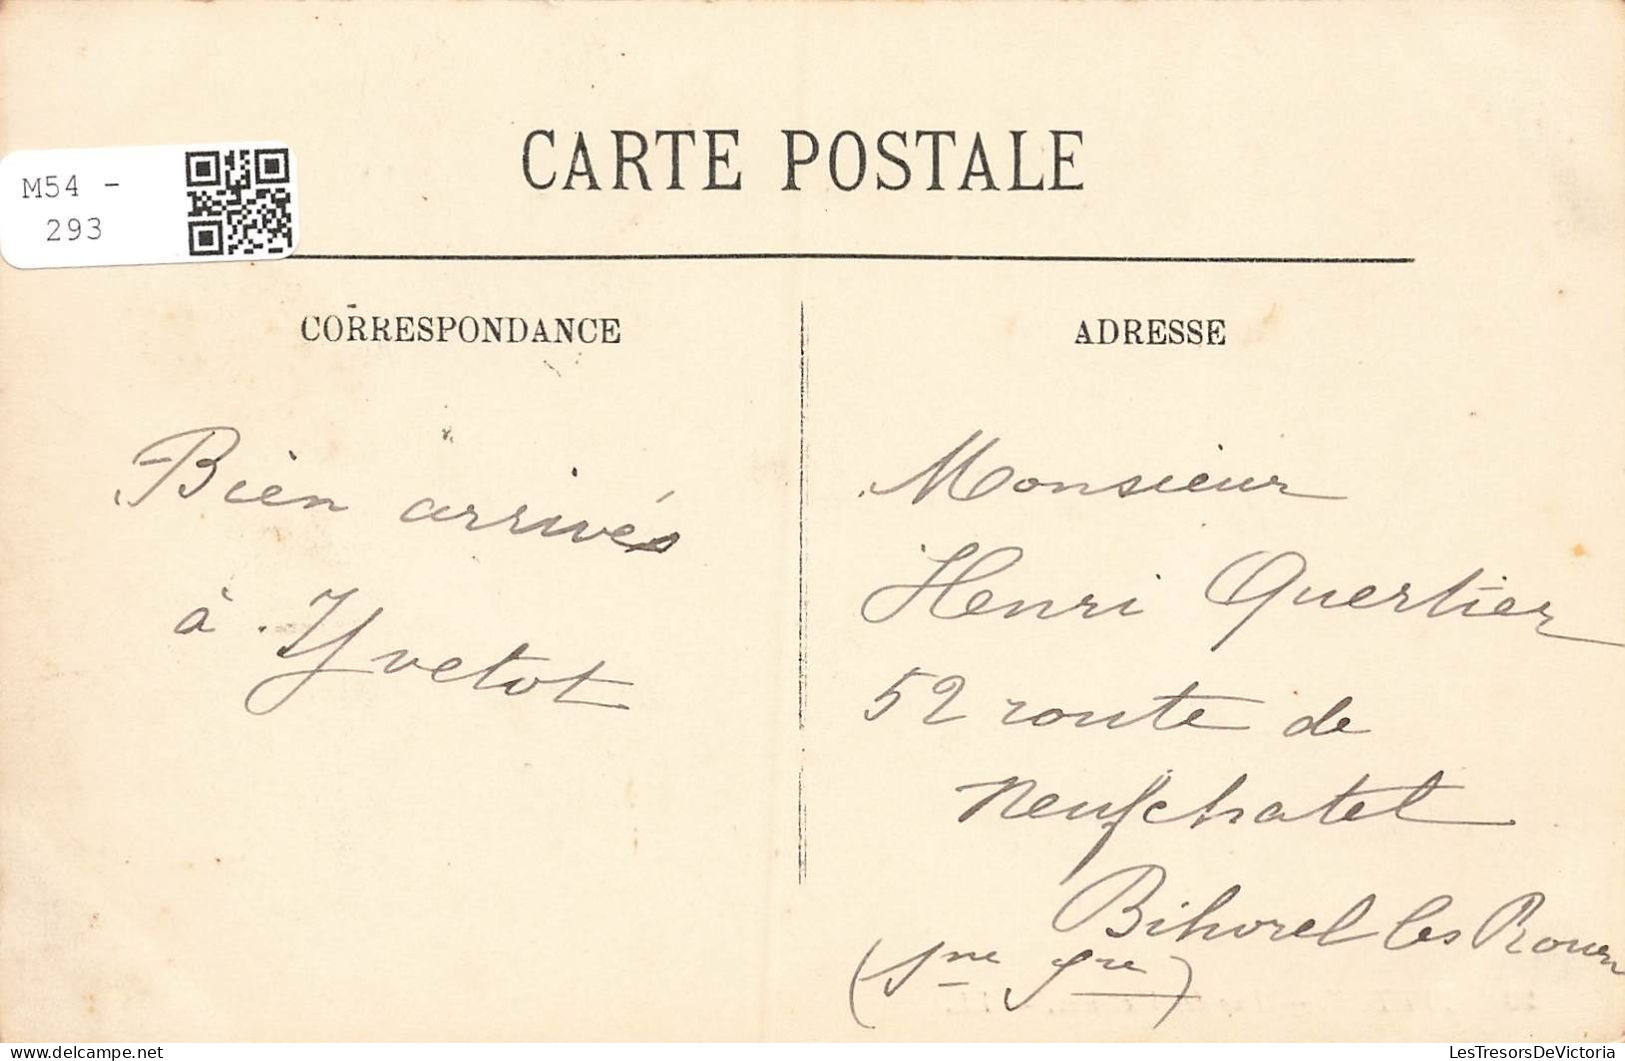 M54 -
293
CARTE POSTALE
CORRESPONDANCE
ADRESSE
Bien arrivés
à Yvetot
Monsieur
Henri Quertier
52 route de
Neufchatel
Bihorel les Rouen
(Sne Fre)
LesTresorsDeVictoria